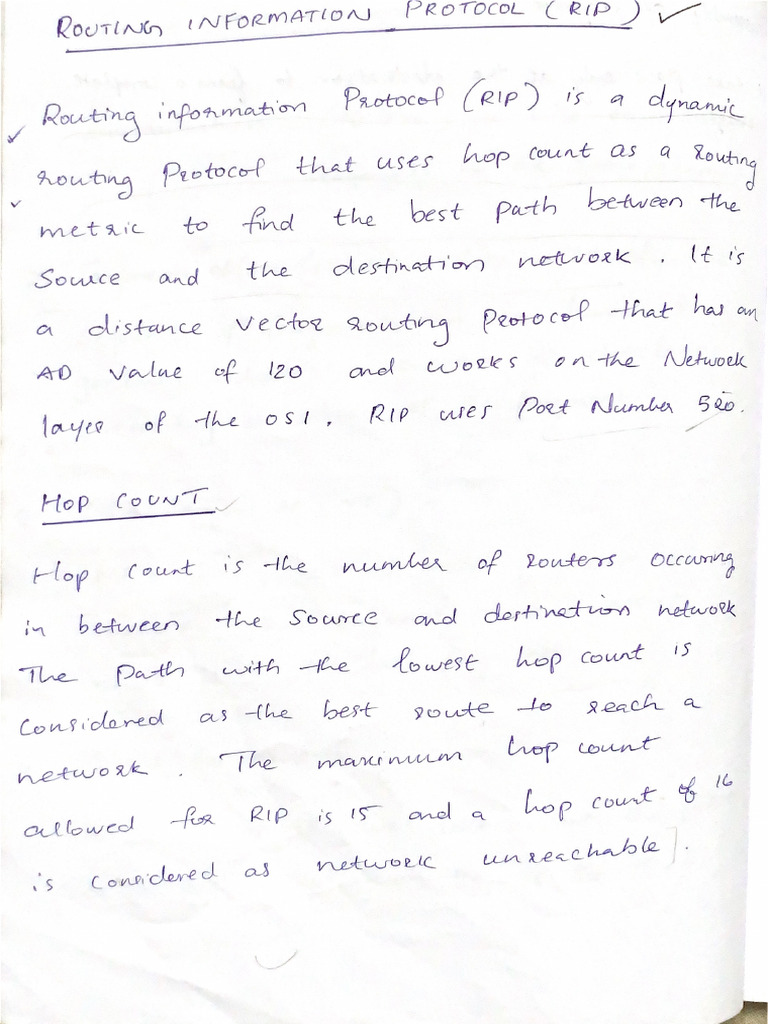 ROUTING INFORMATION PROTOCOL (RIP)
Routing information Protocol (RIP) is a dynamic
routing Protocol that uses hop count as a routing
metric to find the best path between the
Source and the destination network. It is
a distance vector routing Protocol that has an
AD value of 120 and works on the Network
layer of the OSI. RIP uses Port Number 520.
HOP COUNT
Hop count is the number of routers occuring
in between the source and destination network
The path with the lowest hop count is
considered as the best route to reach a
network. The maximum hop count
allowed for RIP is 15 and a hop count of 16
is considered as network unreachable].